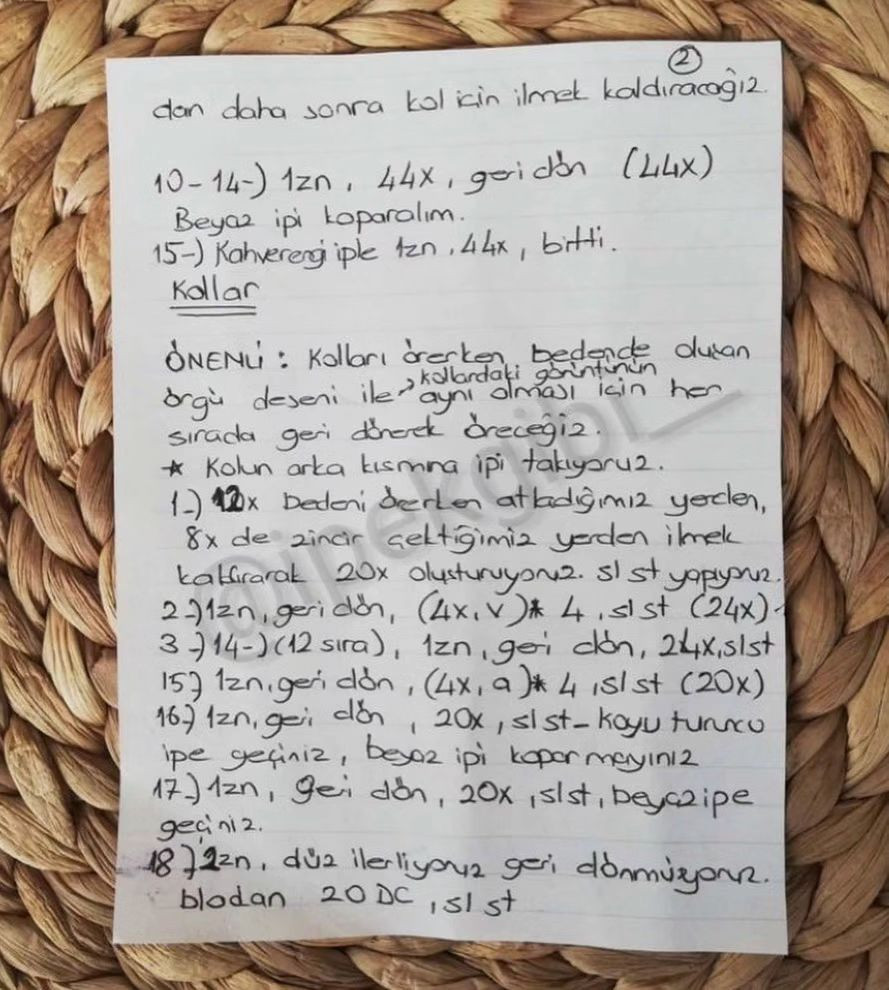 2
dan daha sonra kol için ilmek kaldıracağız.
10-14-) 1zn, 44x, geri dön (44x)
Beyaz ipi koparalım.
15-) Kahverengi iple 1zn, 44x, bitti.
Kollar
ÖNEMLİ : Kolları örerken bedende oluşan
kollardaki görüntünün
örgü deseni ile aynı olması için her
sırada geri dönerek öreceğiz.
* Kolun arka kısmına ipi takıyoruz.
1-) 12x bedeni örerken atladığımız yerden,
8x de zincir çektiğimiz yerden ilmek
kaldırarak 20x oluşturuyoruz. sl st yapıyoruz.
2-) 1zn, geri dön, (4x, v)* 4, sl st (24x)
3-) 14-) (12 sıra), 1zn, geri dön, 24x, sl st
15-) 1zn, geri dön, (4x, a)* 4, sl st (20x)
16-) 1zn, geri dön, 20x, sl st - koyu turuncu
ipe geçiniz, beyaz ipi koparmayınız
17-) 1zn, geri dön, 20x, sl st, beyaz ipe
geçiniz.
18-) 2zn, düz ilerliyoruz geri dönmüyoruz.
blodan 20 DC, sl st
@ipekgibi__